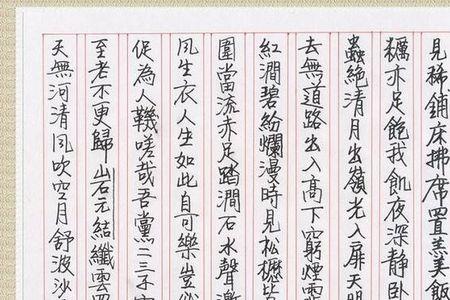 見稀鋪床拂席置羹飯
糲亦足飽我飢夜深靜卧
蟲絕清月出嶺光入扉天明
去無道路出入高下窮煙霏
紅澗碧紛爛漫時見松櫪皆
圍當流赤足踏澗石水聲激
風生衣人生如此自可樂豈必
促為人鞿嗟哉吾黨二三子
至老不更歸岩元結纖雲四
天無河清風吹空月舒波沙